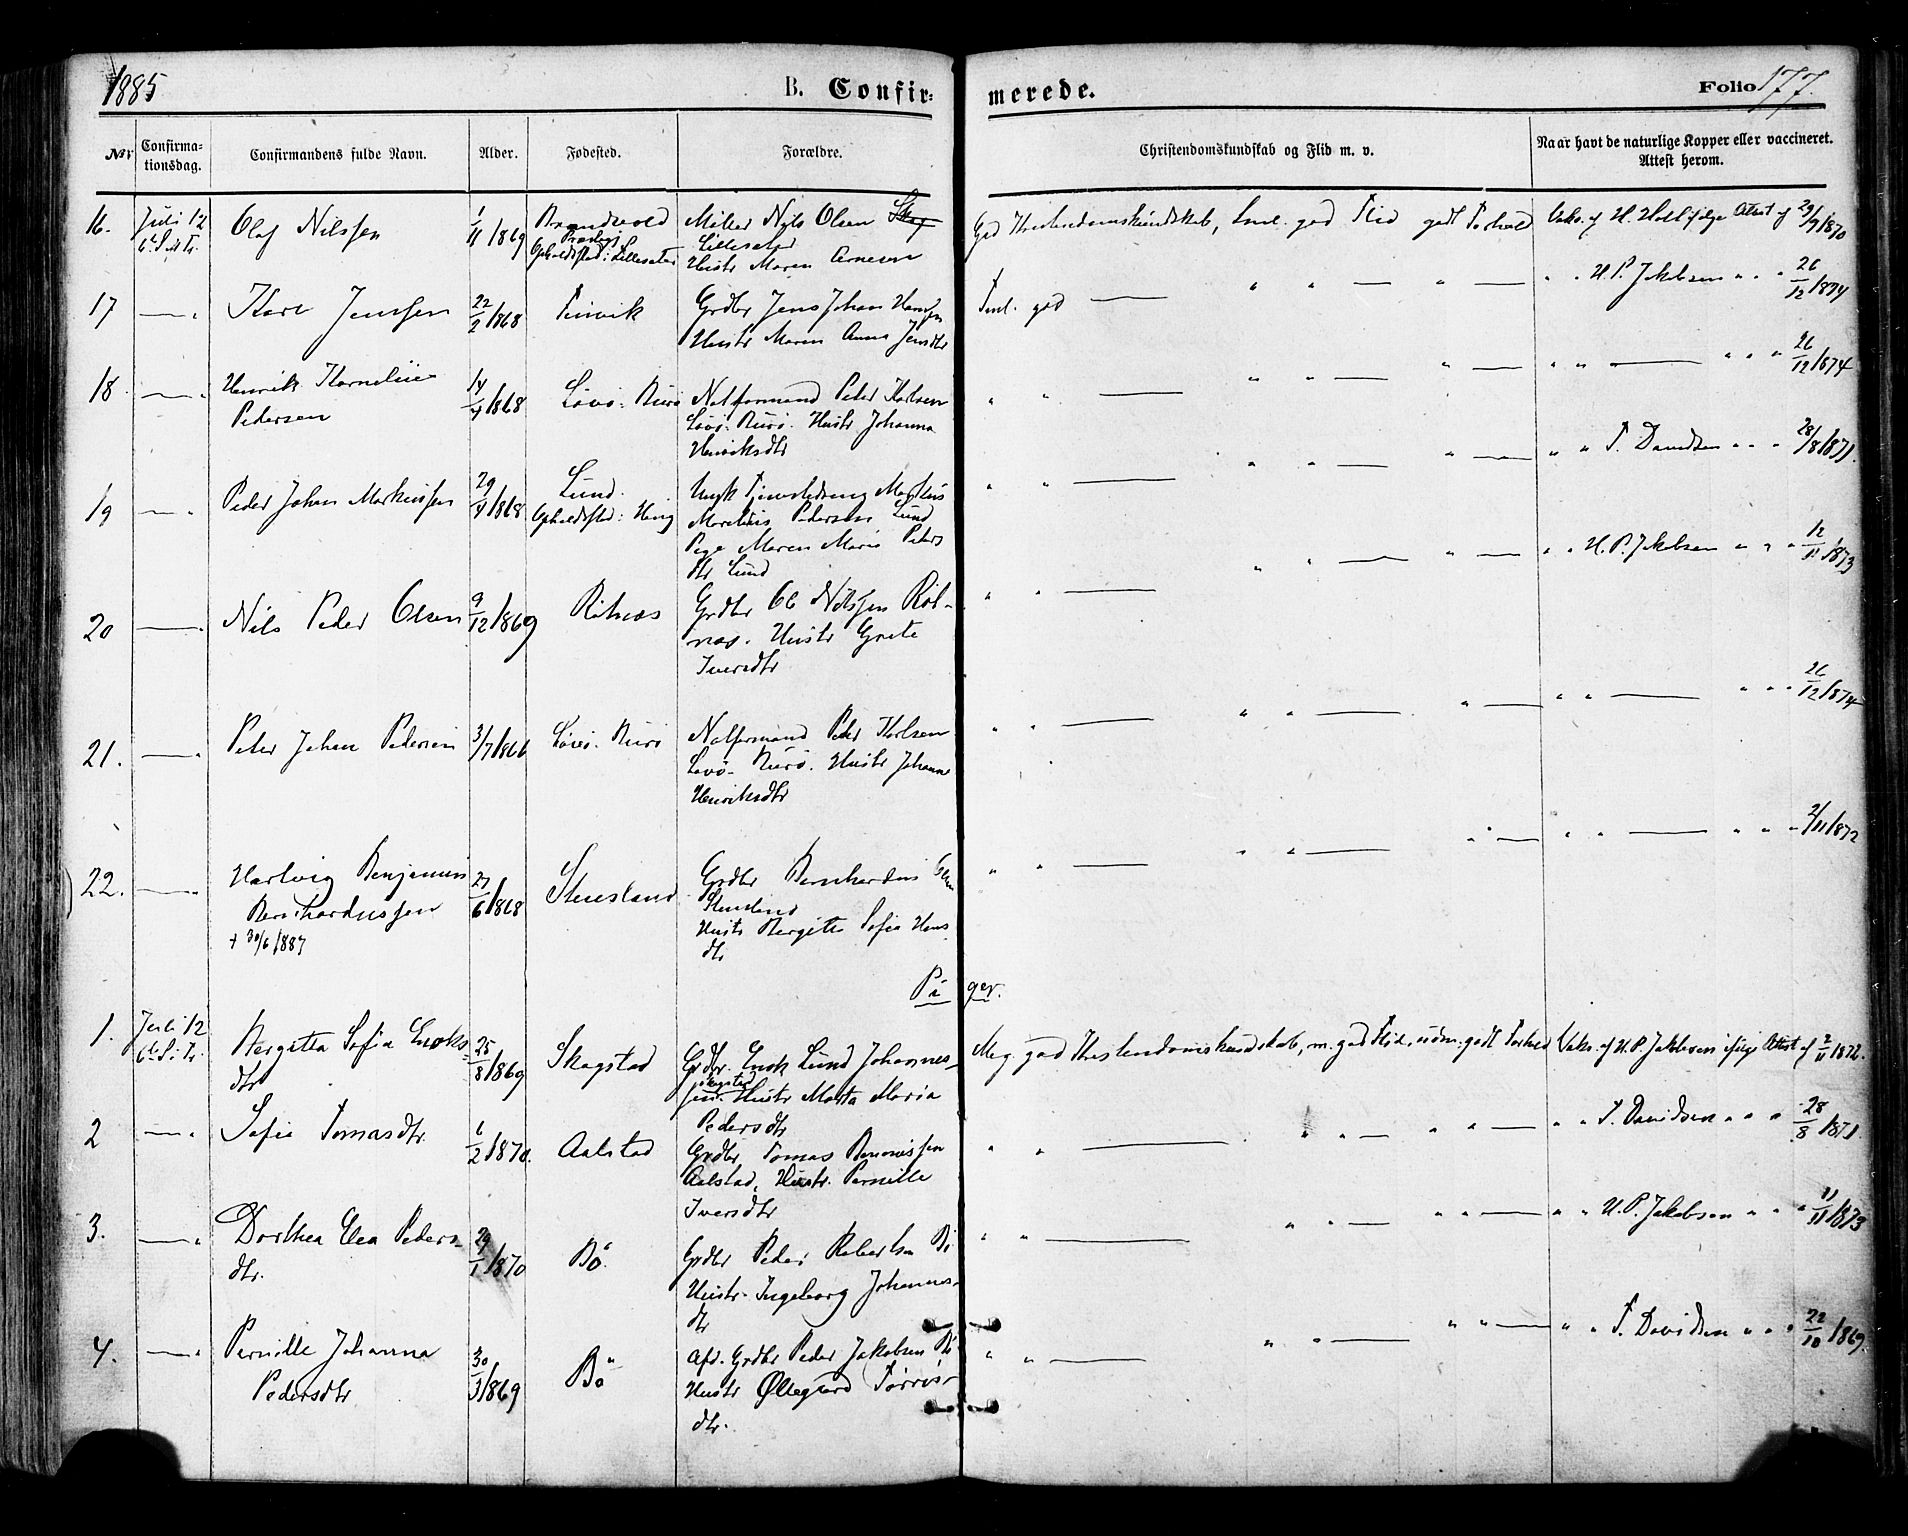 1885
B. Confir-
merede.
Folio 177.
Nr
Confirma-
tionsdag.
Confirmandens fulde Navn.
Alder.
Fødested.
Forældre.
Christendomskundskab og Flid m. v.
Naar havt de naturlige Kopper eller vaccineret.
Attest herom.
16. Juli 12 Olaf Nilssen 1/11 1869 Brandvold
Opholdssted: Lillesæter
Møller Nils Olsen
Lillesæter
Hustr Maren Arnesen
God Kristendomskundskab, Flid godt Forhold Vaks. af H. ifølge Attest af 29/9 1870
17 —〃 Kare Jenssen 22/2 1868 Finvik Grdbr Jens Johan Hansen
Hustr Maren Anna Jensdtr
Tml. god — 〃 〃 — 〃 — 〃 〃 H. P. Jakobsen 〃 〃 26/12 1874
18. —〃 Henrik Kornelius
Pedersen
14/4 1868 Løvø. Burø Notformand Peter Karlsen
Løvø. Burø. Hustr Johanna
Henriksdtr
〃 〃 — 〃 〃 — 〃 — 〃 〃 — 〃 〃 〃 26/12 1874
19 —〃 Peder Johan Markussen 29/4 1868 Lund.
Opholdssted:
Ungk Markus
Marelius Pedersen Lund
Pige Maren Marie Peters
dtr Lund
〃 〃 — 〃 〃 — 〃 — 〃 〃 T. Davidsen 〃 〃 28/8 1871.
20 —〃 Nils Peder Olsen 9/12 1869 Rotnæs Grdbr Ol Nilssen Rot-
næs. Hustr Grete
Iversdtr
〃 〃 — 〃 〃 — 〃 — 〃 〃 H. P. Jakobsen 〃 〃 〃 12/11 1873
21. —〃 Peter Johan Pedersen 3/7 1866 Løvø. Burø Notformand Peder Karlsen
Løvø. Burø. Hustr Johanna
Henriksdtr
〃 〃 — 〃 〃 — 〃 — 〃 〃 — 〃 〃 〃 26/12 1874
22. —〃 Hartvig Benjamin
Bernhardussen
+ 30/6 1887
27/6 1868 Stensland Grdbr Bernhardus
Stensland
Hustr Bergitte Sofie Hans
dtr
〃 〃 — 〃 〃 — 〃 — 〃 〃 — 〃 〃 〃 2/11 1872
Pi ger.
1. Juli 12 Bergitta Sofia Enoks-
dtr
25/8 1869 Skagstad Grdbr. Enok Lund Johannes-
sen Skagstad Hustr Marta Maria
Pedersdtr
Meg. god Kristendomskundskab, m. god Flid, udm. godt Forhold Vaks. af H. P. Jakobsen ifølge Attest af 2/11 1872.
2 —〃 Sofie Tomasdtr. 6/2 1870. Aalstad Grdbr Tomas Benonissen
Aalstad, Hustr. Pernille
Iversdtr
〃 〃 — 〃 〃 — 〃 〃 — 〃 〃 T. Davidsen 〃 〃 〃 28/8 1871.
3. —〃 Dorthea Elea Peders-
dtr.
29/1 1870 Bø. Grdbr Peder Robertsen Bø
Hustr. Ingeborg Johannes-
dtr
〃 〃 — 〃 〃 — 〃 〃 — 〃 〃 H. P. Jakobsen 〃 〃 〃 11/11 1873
4. —〃 Pernille Johanna
Pedersdtr
30/3 1869 Bø Afd. Grdbr Peder Jakobsen Bø
Hustr Øllegaard Tørris-
dtr.
〃 〃 — 〃 〃 — 〃 〃 — 〃 〃 T. Davidsen 〃 〃 〃 22/10 1869.